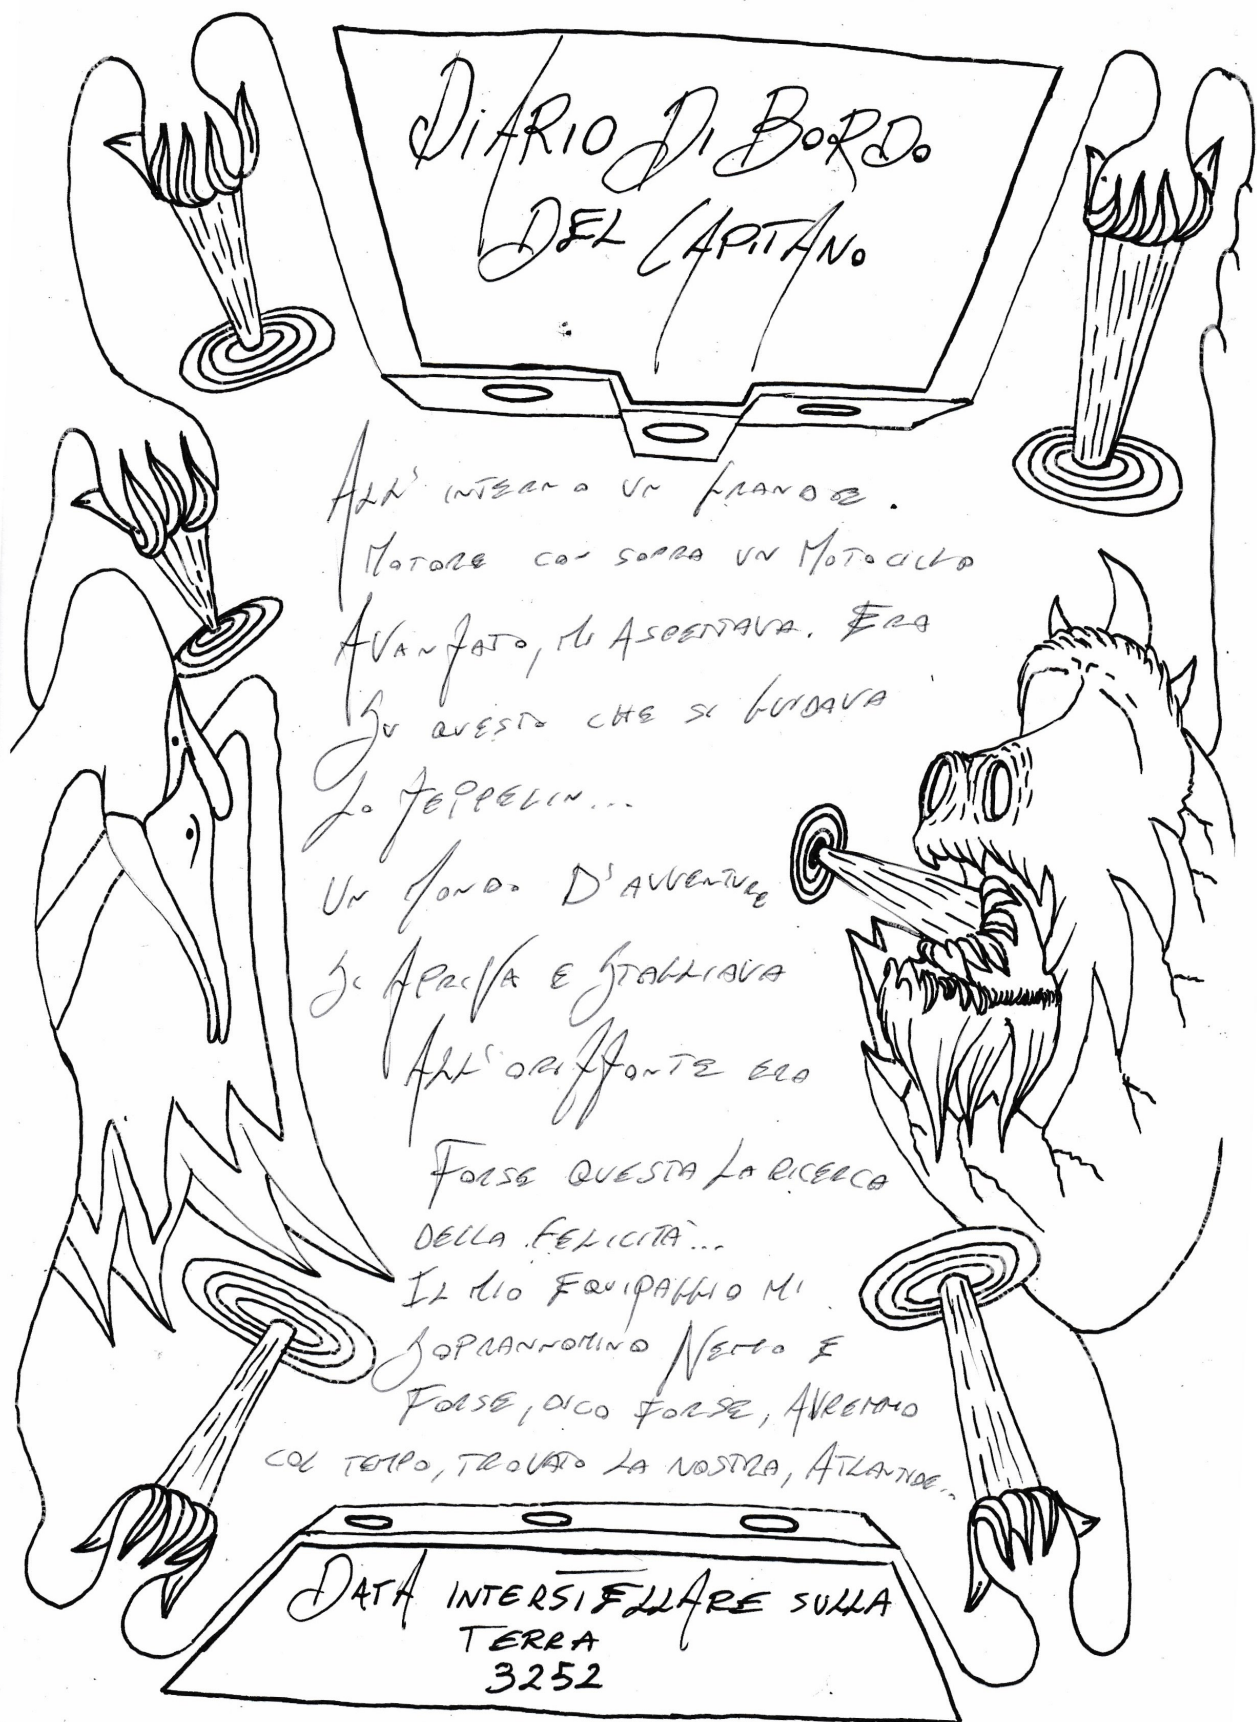 DIARIO DI BORDO
DEL CAPITANO
ALL'INTERNO UN GRANDE.
MOTORE CON SOPRA UN MOTOCICLO
AVANZATO, MI ASPETTAVA. ERA
SU QUESTO CHE SI GUIDAVA
LO ZEPPELIN...
UN MONDO D'AVVENTURE
SI APRIVA E STAGLIAVA
ALL'ORIZZONTE ERA
FORSE QUESTA LA RICERCA
DELLA FELICITÀ...
IL MIO EQUIPAGGIO MI
SOPRANNOMINO NEMO E
FORSE, DICO FORSE, AVREMMO
COL TEMPO, TROVATO LA NOSTRA, ATLANTIDE...
DATA INTERSTELLARE SULLA
TERRA
3252